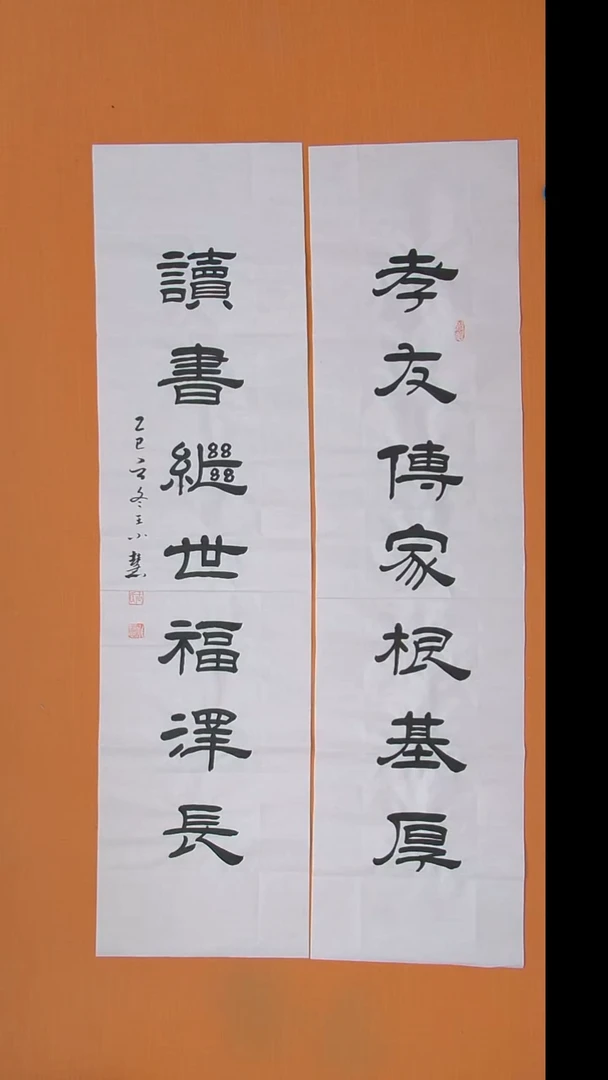 孝友傳家根基厚
讀書繼世福澤長
乙巳立冬王小慧